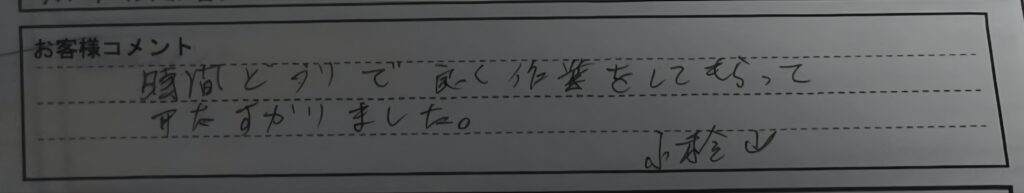 お客様コメント
時間どおりで良く作業をしてもらって
たすかりました。
小松山